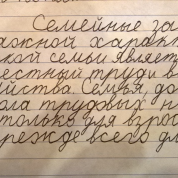 Семейные за
ажной характ
ской семьи являет
естный труд и в
йства. Семья, до
ола трудовых н
только для взрос
режде всего дл